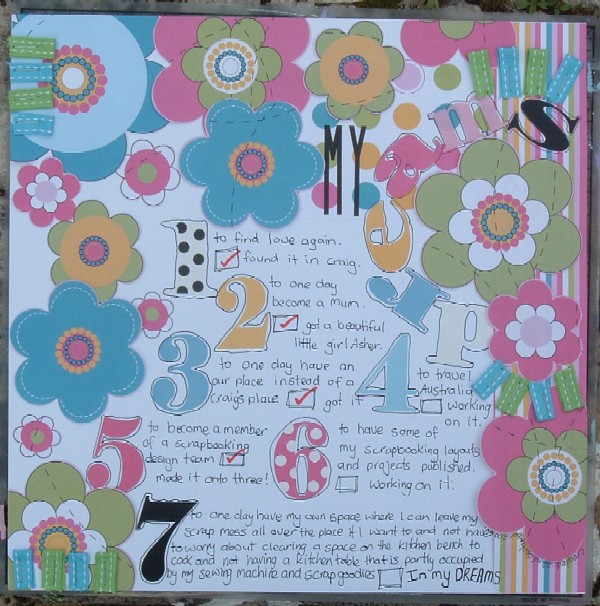 MY
dreams
1
to find love again.
found it in Craig.
2
to one day
become a Mum.
got a beautiful
little girl. Asher.
3
to one day have an
our place instead of a
Craigs place
got it
4
to travel
Australia
working
on it.
5
to become a member
of a scrapbooking
design team
made it onto three!
6
to have some of
my scrapbooking layouts
and projects published.
working on it.
7
to one day have my own space where I can leave my
scrap mess all over the place if I want to and not have
to worry about clearing a space on the kitchen bench to
cook and not having a kitchen table that is partly occupied
by my sewing machine and scrap goodies
In my DREAMS